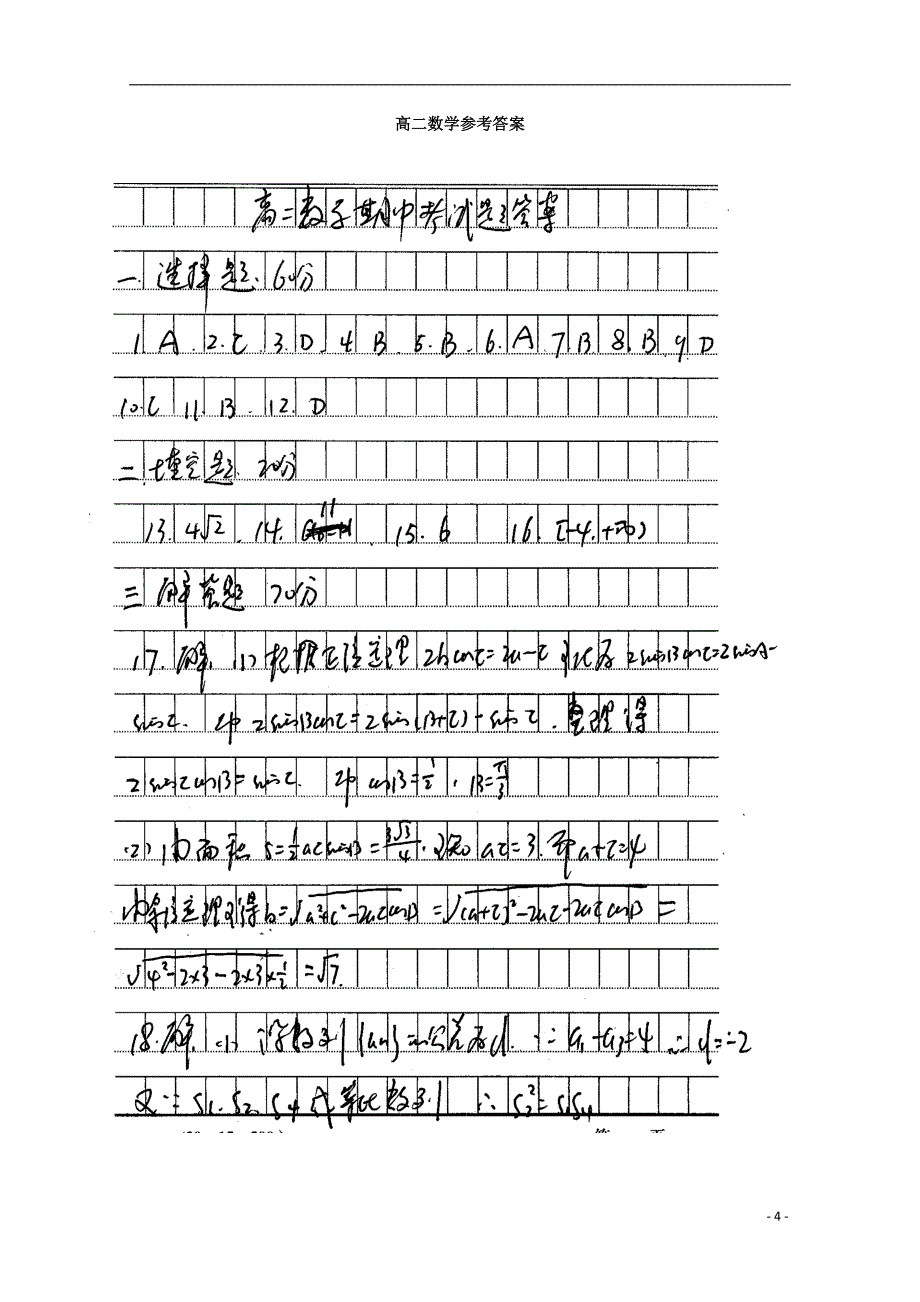 高二数学参考答案
高二数学期中考试题答案
一.选择题.60分
1.A.2.C.3.D.4.B.5.B.6.A.7.B 8.B.9.D
10.C 11.B.12.D
二.填空题.20分
13.4√2.14. 11 .15.6 16.[-4,+∞)
三.解答题 70分
17.解.(1)根据正弦定理2bcosC=2a-c可化为2sinBcosC=2sinA-
sinC.即2sinBcosC=2sin(B+C)-sinC.整理得
2sinCcosB=sinC.即cosB=1/2,B=π/3
(2)由面积S=1/2acsinB=3√3/4.可知ac=3.而a+c=4
由余弦定理可得b=√(a²+c²-2accosB)=√((a+c)²-2ac-2accosB)=
√(4²-2×3-2×3×1/2)=√7.
18.解.(1)设数列{an}的公差为d.∵a1=a3+4∴d=-2
又∵S1.S2.S4成等比数列∴S2²=S1S4
- 4 -